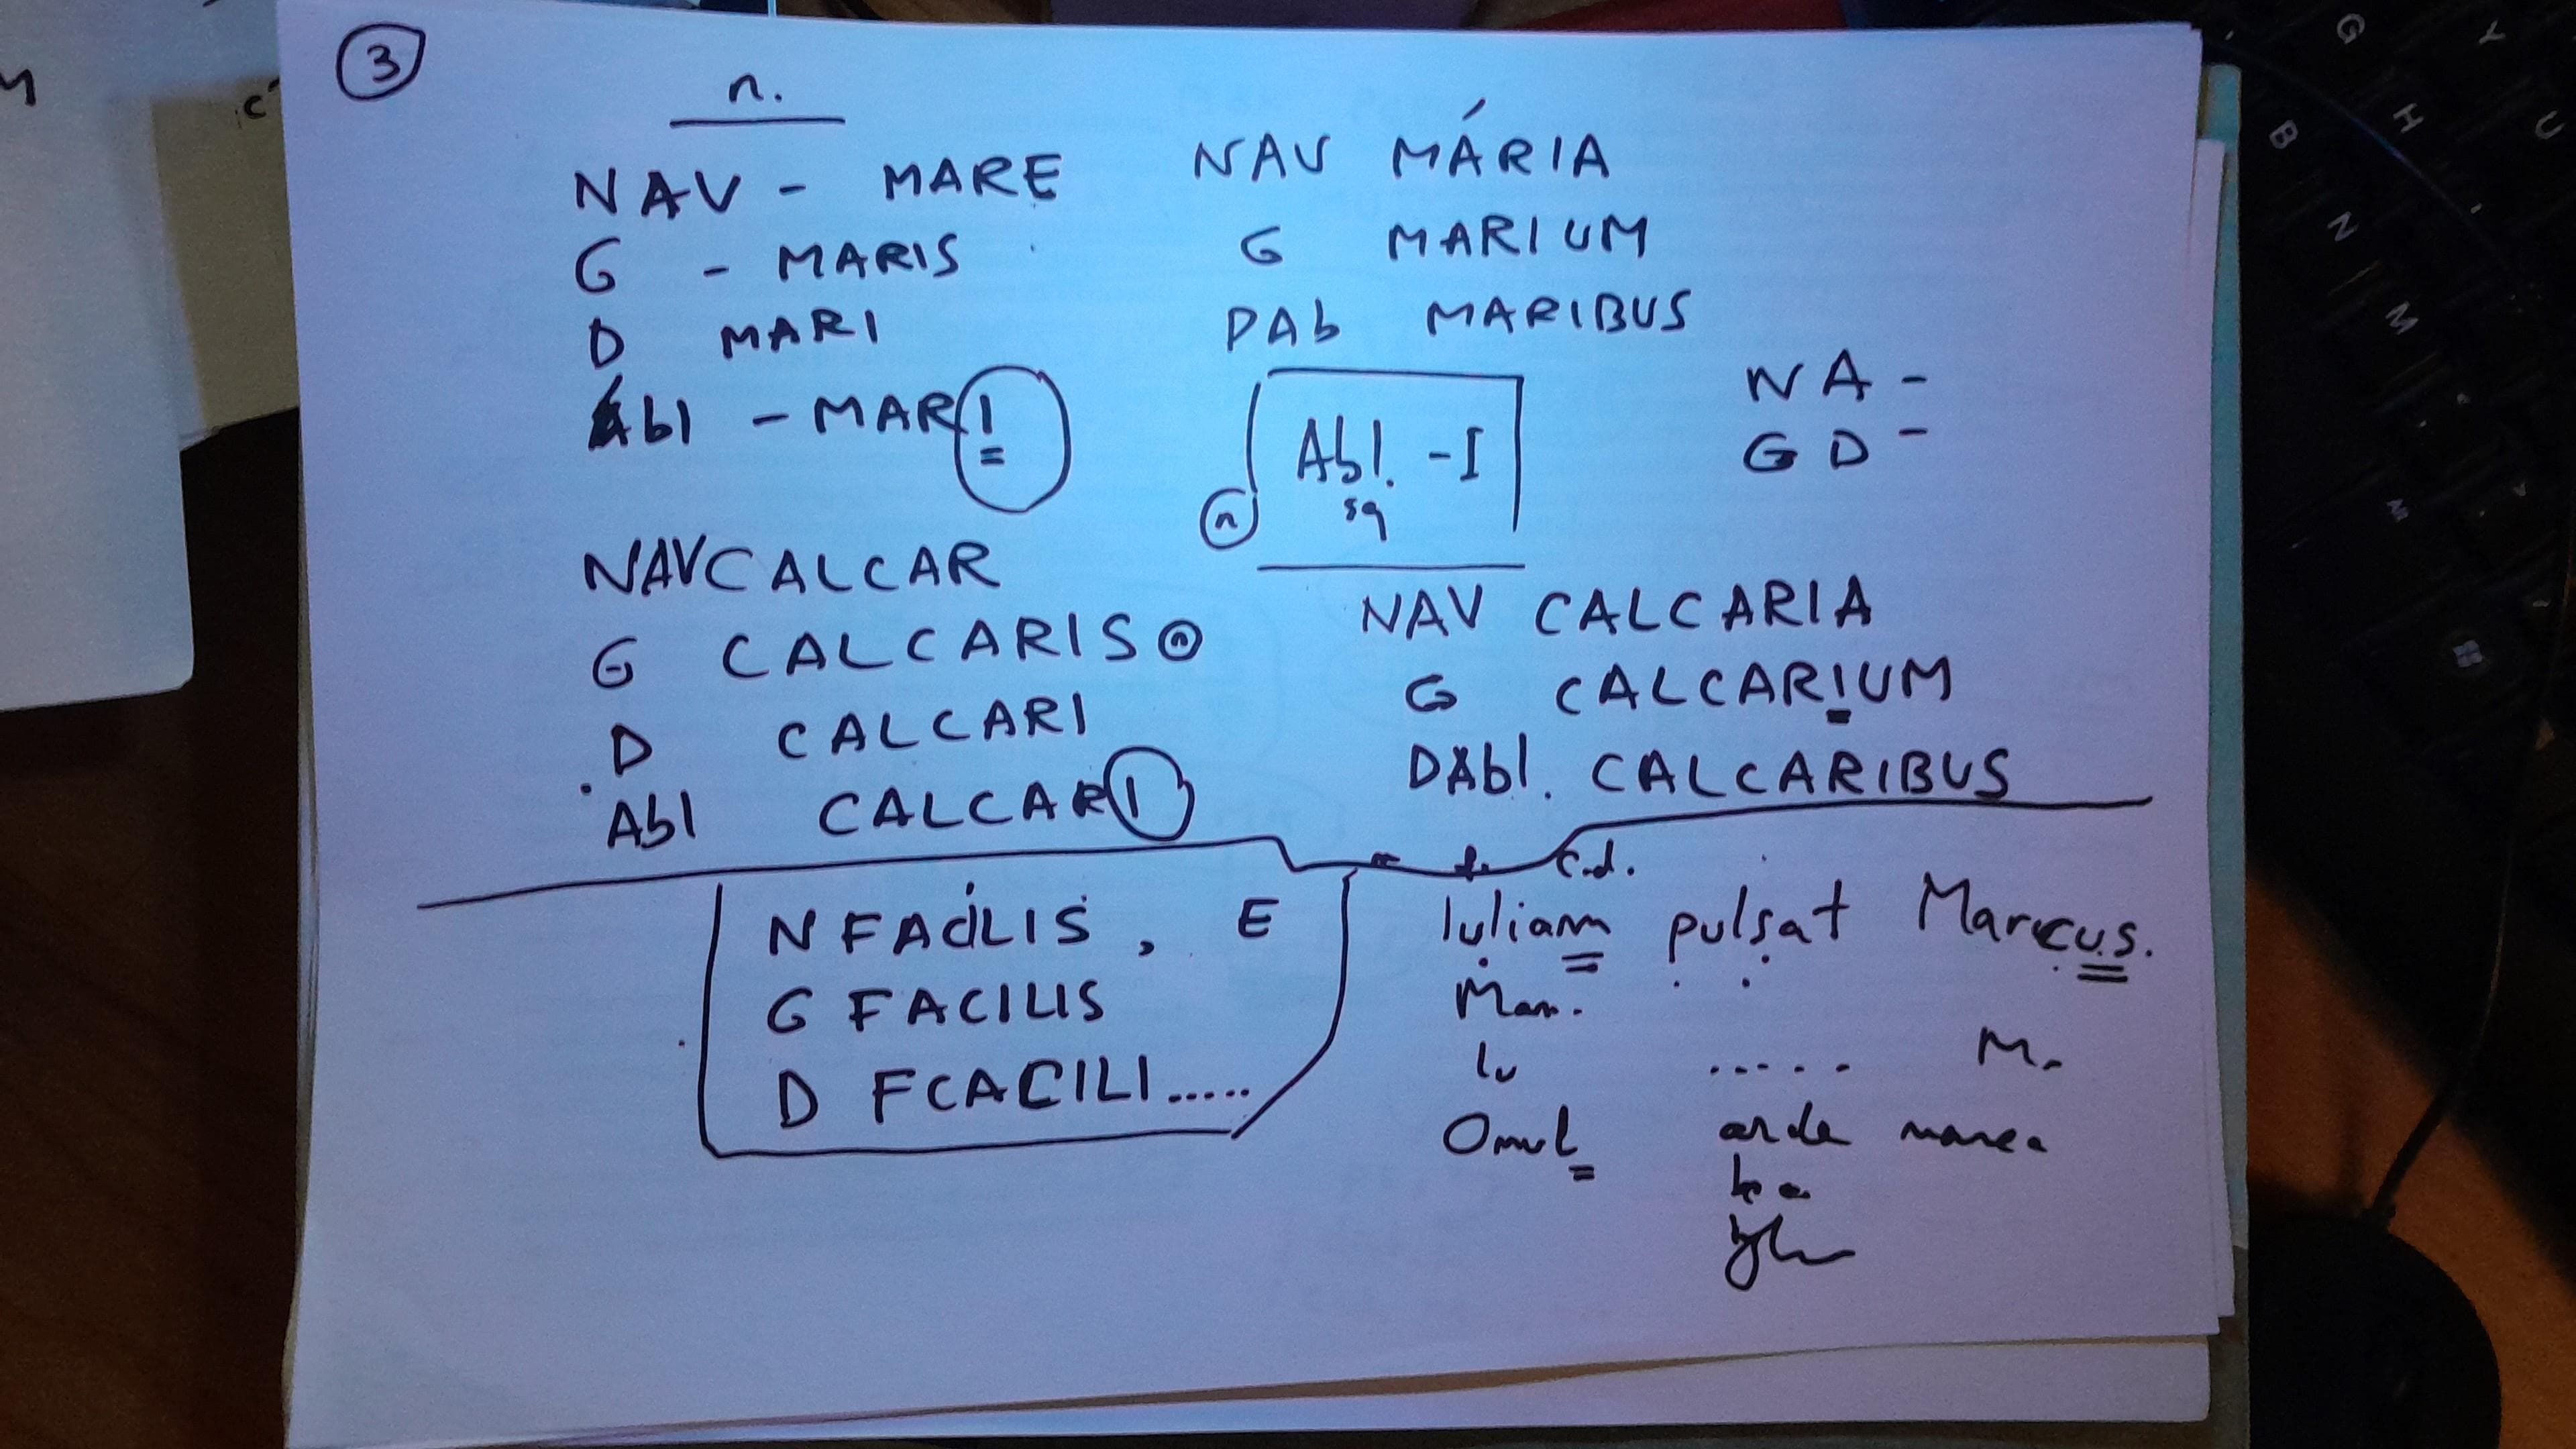 3
n.
NAV - MARE
G - MARIS
D MARI
Abl - MARI
NAV MÁRIA
G MARIUM
DAb MARIBUS
Abl. - I
sg
n
N A -
G D -
NAV CALCAR
G CALCARIS n
D CALCARI
Abl CALCARI
NAV CALCARIA
G CALCARIUM
DAbl. CALCARIBUS
N FACILIS, E
G FACILIS
D FCACILI.....
c.d.
Iuliam pulsat Marcus.
Mam.
Iu ..... M.
Omul arde marea